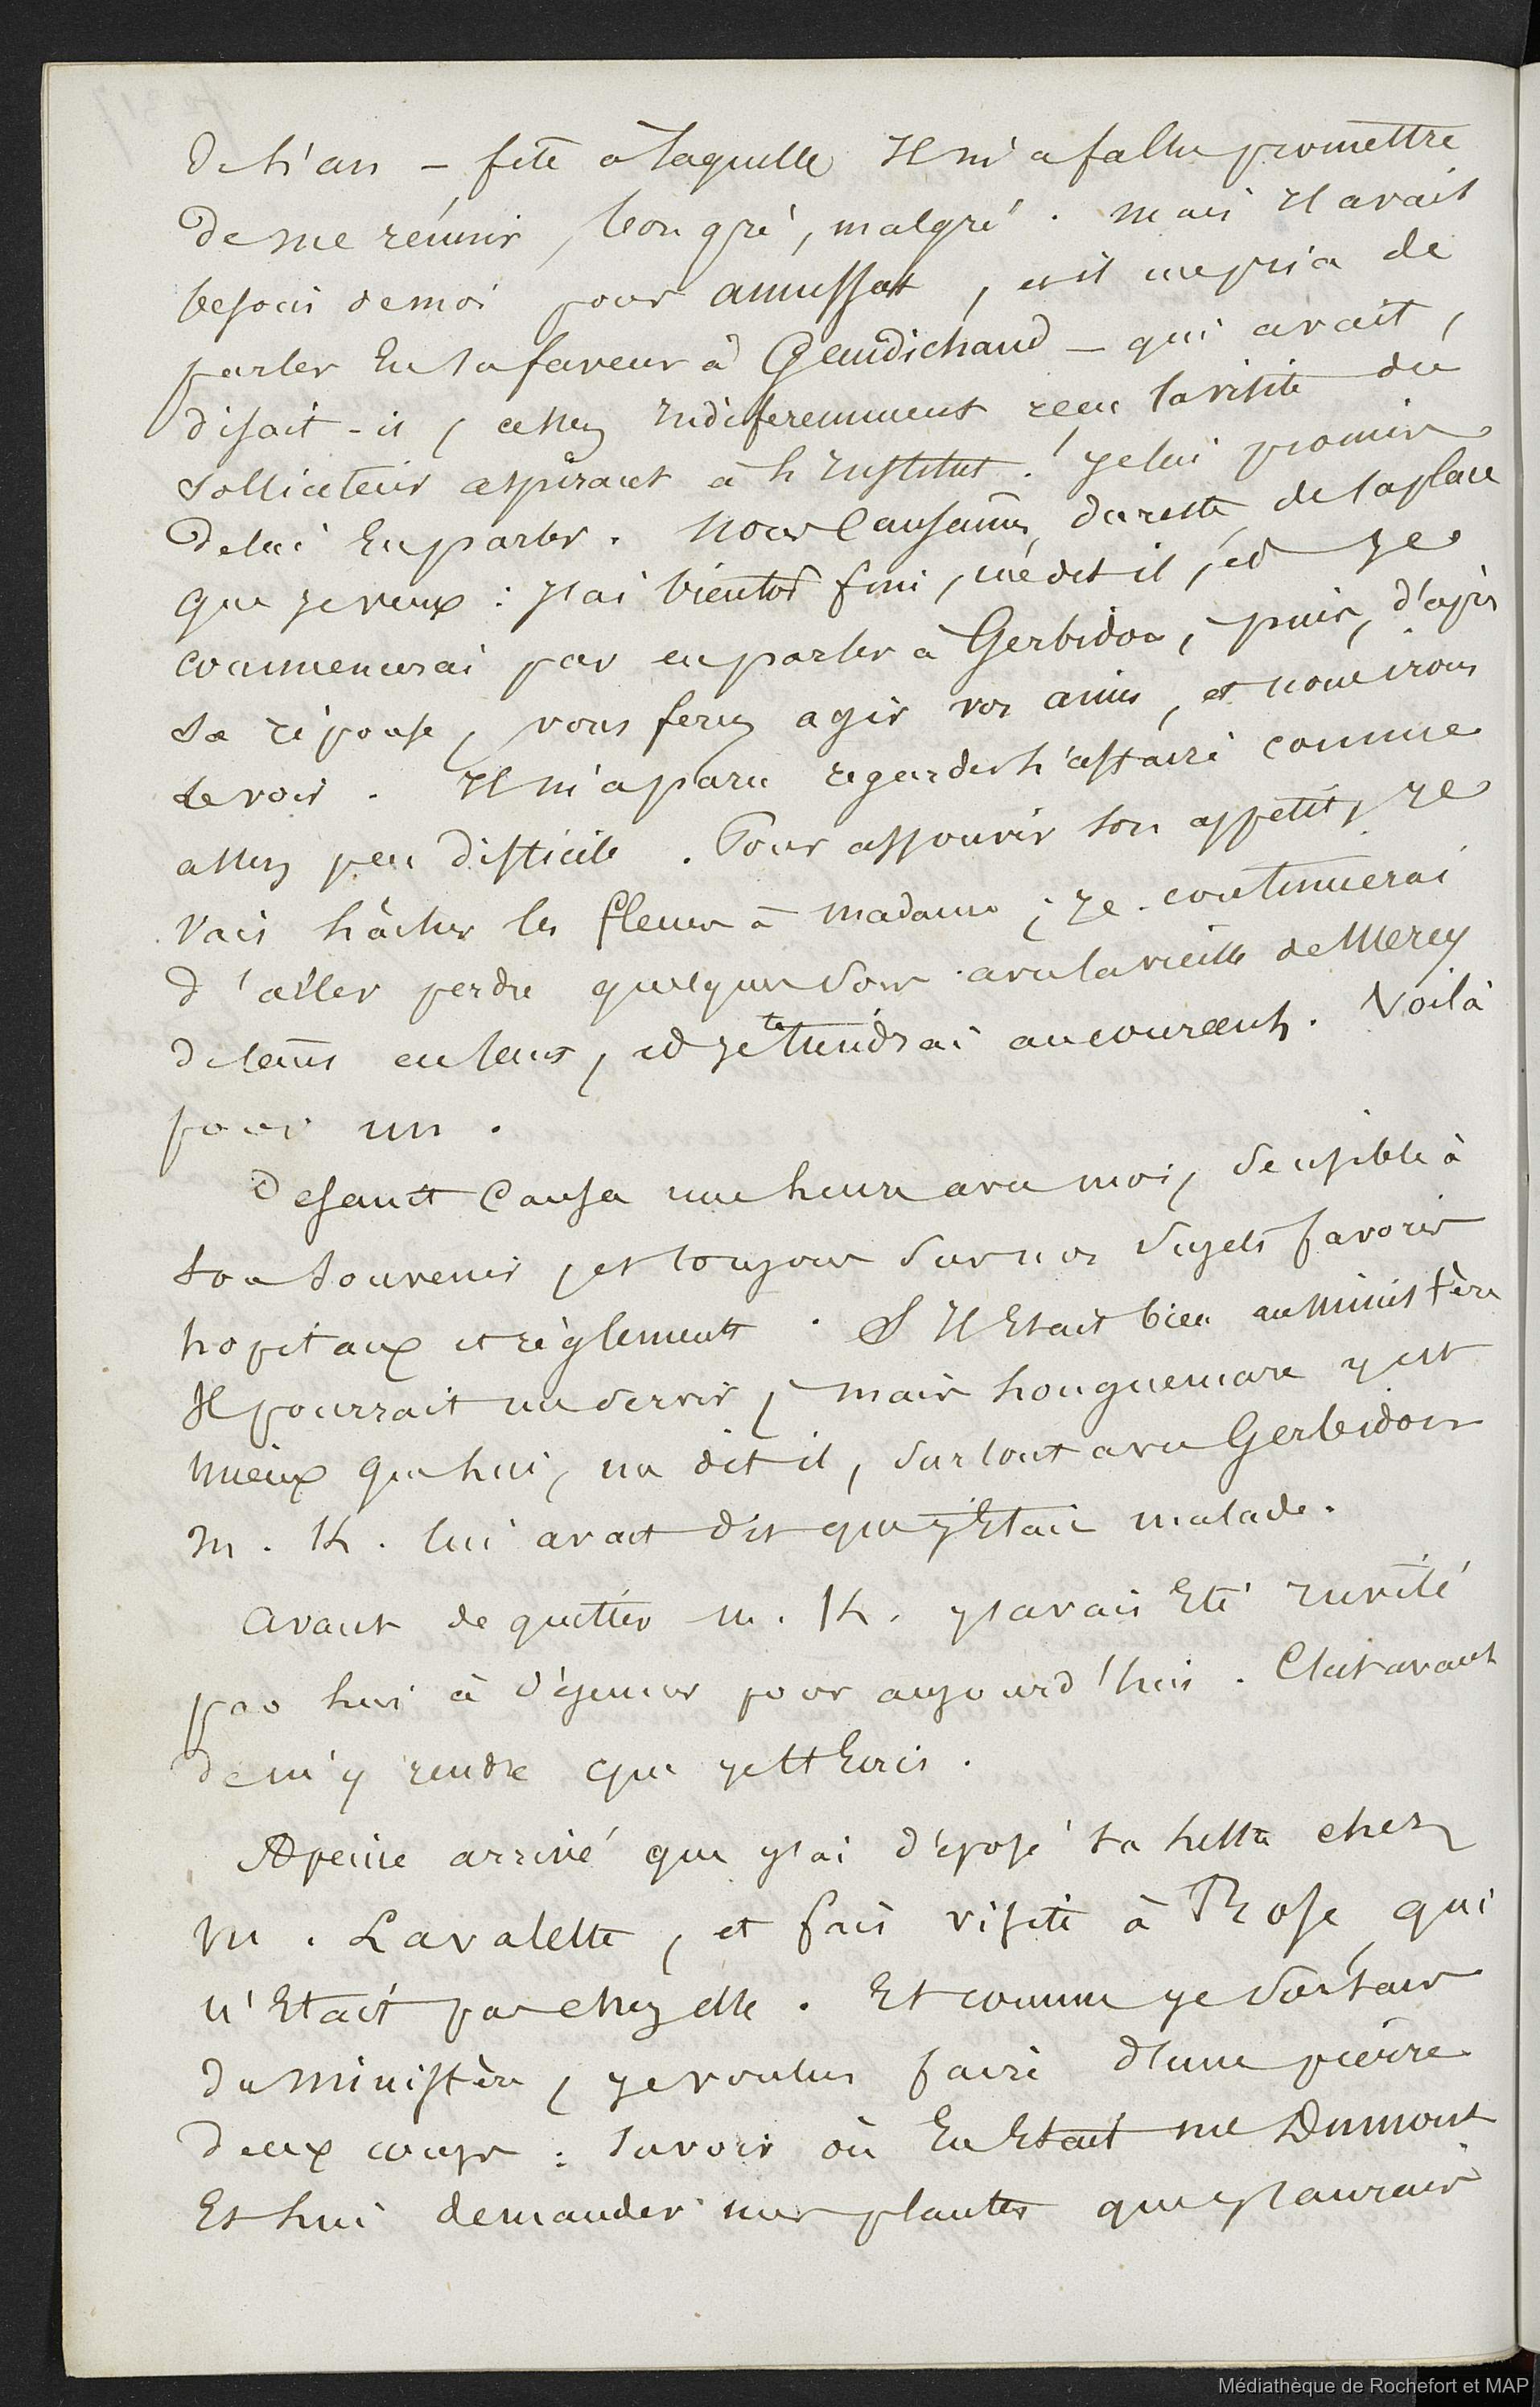 de l'an – fête à laquelle Il m'a fallu promettre
de me réunir, bon gré, malgré. Mais Il avait
besoin de moi pour amussat, et il me pria de
parler En sa faveur à Gaudichaud – qui avait,
disait-il, assez Indiferemment reçu la visite du
solliciteur aspirant à l'Institut. je lui promis
de lui En parler. Nous Causames, du reste, de la place
que je veux : j'ai bientot fini, me dit il, et je
commencerai par en parler à Gerbidon, puis, d'après
sa réponse, vous ferez agir vos amis, et nous irons
le voir. Il m'a paru regarder l'affaire comme
assez peu difficile. Pour assouvir son appetit, je
vais lâcher les fleurs à madame ; je continuerai
d'aller perdre quelques soirs avec la vieille de Mercy
de tems en tems, et je te tiendrai au courant. Voilà
pour un.
Desault Causa une heure avec moi, sensible à
ton souvenir, et toujours sur nos sujets favoris
hopitaux et règlements. S'Il Etait bien au Ministère
Il pourrait me servir, mais houguemare y est
mieux que lui, me dit il, surtout avec Gerbidon
M. K. lui avait dit que j'Etais malade.
Avant de quitter M. K. j'avais Eté Invité
par lui à déjeuner pour aujourd'hui. C'est avant
de m'y rendre que je t'Ecris.
A peine arrivé que j'ai déposé ta lettre chez
M. Lavalette, et fais visite à Rose, qui
n'Etait pas chez elle. Et comme je sortais
du Ministère, je voulus faire d'une pierre
deux coups : savoir où En Etait Me Dumont
Et lui demander mes plantes que j'aurais
Médiathèque de Rochefort et MAP